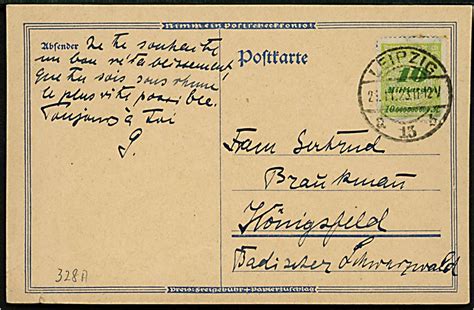 Nimm ein Postscheckkonto!
Absender
Je te souhaite
un bon rétablissement
que tu sois sans rhume
le plus vite possible.
Toujours à toi
G.
Postkarte
LEIPZIG
11.23.11-12V
13
10
Milliarden
Frau Gertrud
Braukmann
Königsfeld
Badischer Schwarzwald
328
Preis: Freigebühr + Papierzuschlag